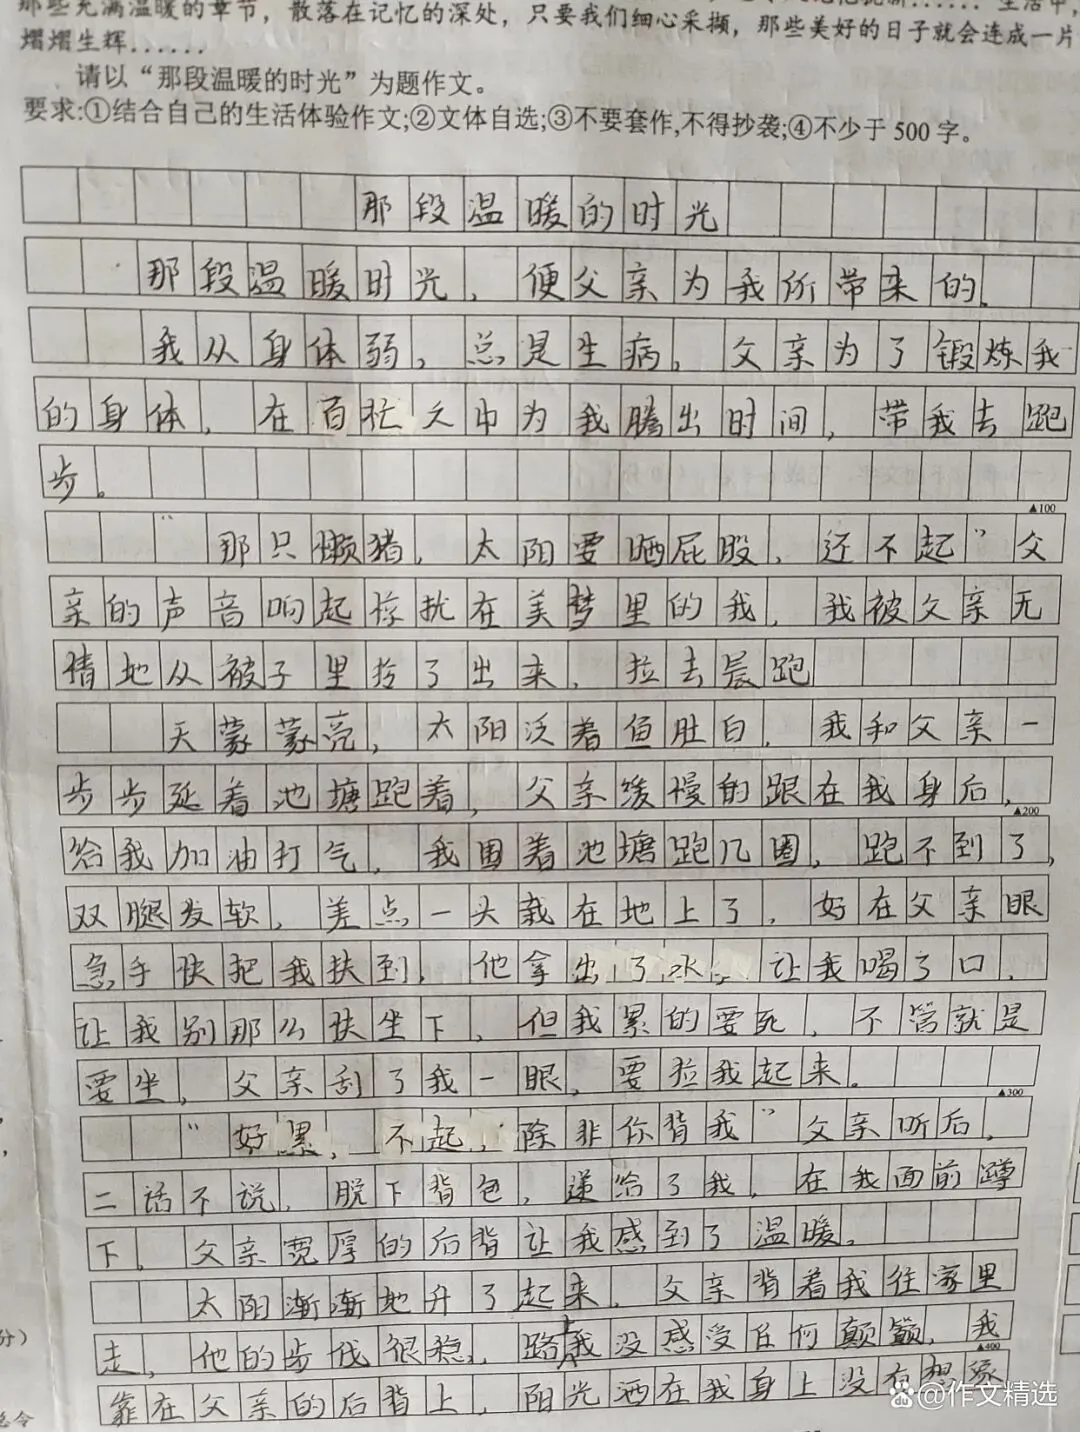 那些充满温暖的章节，散落在记忆的深处，只要我们细心采撷，那些美好的日子就会连成一片
熠熠生辉……
请以“那段温暖的时光”为题作文。
要求:①结合自己的生活体验作文;②文体自选;③不要套作,不得抄袭;④不少于 500 字。
那段温暖的时光
那段温暖时光，便父亲为我所带来的。
我从身体弱，总是生病。父亲为了锻炼我
的身体，在百忙之中为我腾出时间，带我去跑
步。
▲100
“那只懒猪，太阳要晒屁股，还不起”父
亲的声音响起惊扰在美梦里的我，我被父亲无
情地从被子里拉了出来，拉去晨跑
天蒙蒙亮，太阳泛着鱼肚白，我和父亲一
步步延着池塘跑着，父亲缓慢的跟在我身后，
▲200
给我加油打气，我围着池塘跑几圈，跑不到了，
双腿发软，差点一头栽在地上了，好在父亲眼
急手快把我扶到，他拿出了水，让我喝了口，
让我别那么快坐下，但我累的要死，不管就是
要坐，父亲刮了我一眼，要拉我起来。
▲300
“好累，不起，除非你背我”父亲听后，
二话不说，脱下背包，递给了我，在我面前蹲
下，父亲宽厚的后背让我感到了温暖。
太阳渐渐地升了起来，父亲背着我往家里
走，他的步伐很稳，路上我没感受任何颠簸，我
▲400
靠在父亲的后背上，阳光洒在我身上没有想象
分）
总令
@作文精选